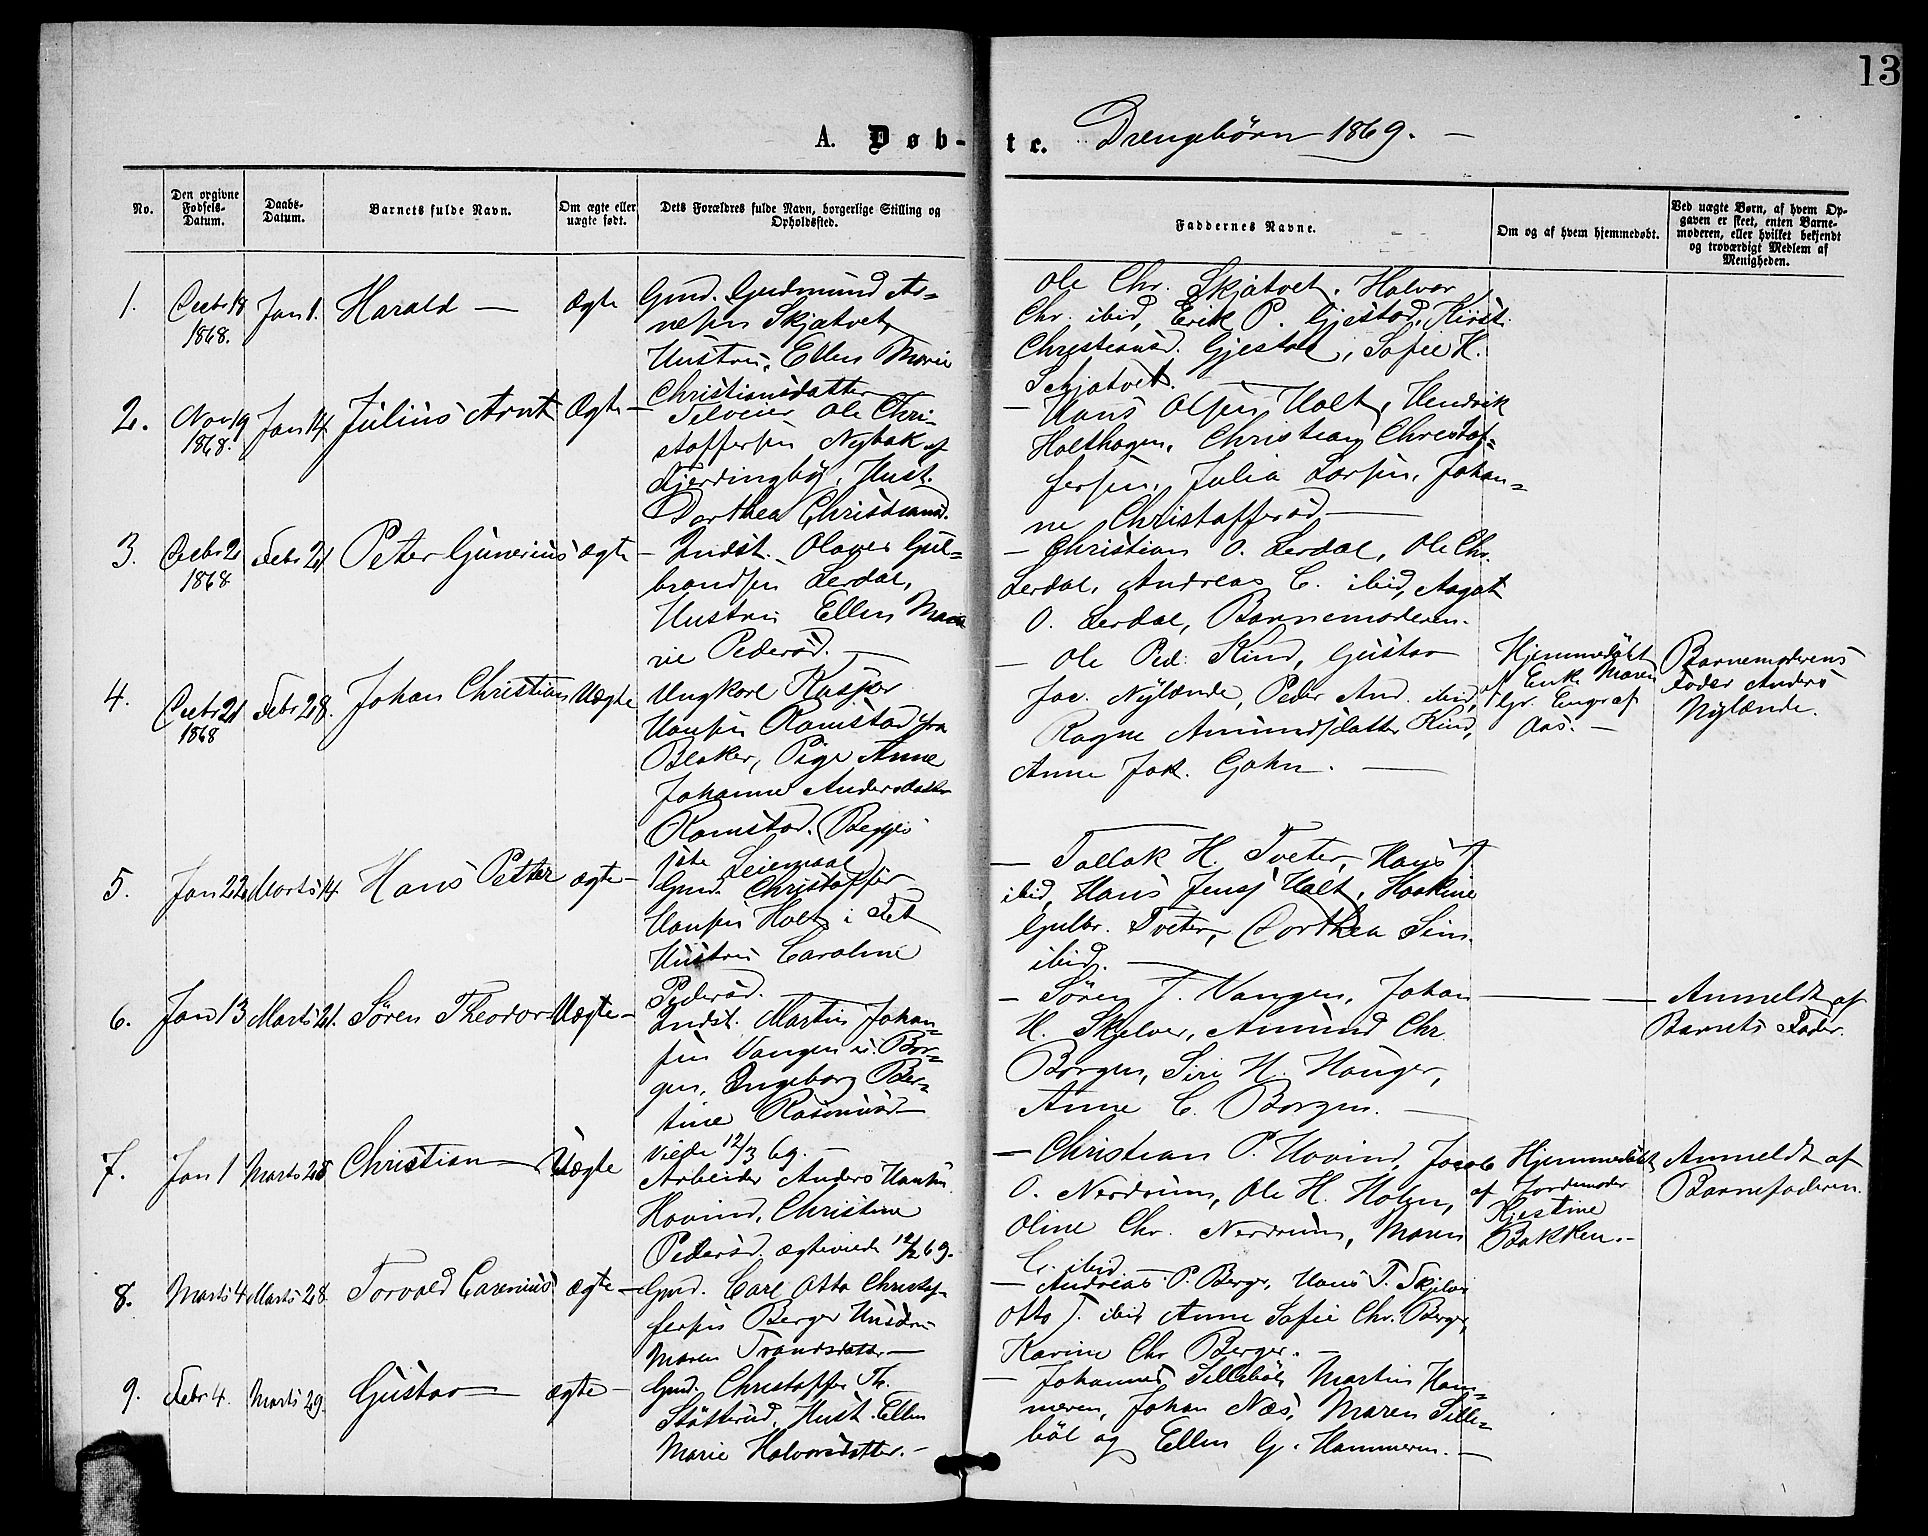 13
A. Døb-te. Drengebørn 1869. —
No.
Den opgivne Fødsels-Datum.
Daabs-Datum.
Barnets fulde Navn.
Om ægte eller uægte født.
Dets Forældres fulde Navn, borgerlige Stilling og Opholdssted.
Faddernes Navne.
Om og af hvem hjemmedøbt.
Ved uægte Børn, af hvem Opgaven er skeet, enten Barnemoderen, eller hvilket bekjendt og troværdigt Medlem af Menigheden.
1. Decbr 18 1868. Jan 1. Harald — Ægte
Gmd. Gudmund Ar=
nesen Skjatvet,
Hustru, Ellen Marie
Christiansdatter
Ole Chr. Skjatvet, Halvor
Chr. ibid, Erik P. Gjestad, Kirst.
Christiansd. Gjestad, Sofie H.
Skjatvet.
2. Nov 19 1868. Jan 14. Julius Arnt Ægte —
Selveier Ole Chri-
stoffersen Nybak af
Fjerdingby, Hust.
Dorthea Christiansd.
— Hans Olsen Holt, Hendrik
Holthagen, Christian Christof=
fersen, Julia Larsen, Johan=
ne Christoffersd —
3. Decbr 21 1868 Febr 21 Peter Gunerius ægte
— Indst. Olaves Gul=
brandsen Lerdal,
Hustru Ellen Ma
rie Pedersd. —
— Christian O. Lerdal, Ole Chr.
Lerdal, Andreas C. ibid, Aagot
O. Lerdal, Barnemoderen.
4. Decbr 21 1868 Febr 28. Johan Christian Uægte
Ungkarl Kasper
Hansen Ramstad fra
Blaker, Pige Anne
Johanne Andersdatter
Ramstad. (Begges
1ste Leiermaal)
— Ole Ped. Kind, Gustav
Jac. Nylænde, Peder And. ibid,
Ragne Amundsdatter Kind,
Anne Jak. Gahn. —
Hjemmedøbt
af Enke Maren
Gr. Enger af
Aas. —
Barnemoderens
Fader Anders
Nylænde.
5. Jan 22 Marts 14. Hans Petter ægte —
Gmd. Christoffer
Hansen Holt i Fet
Hustru Caroline
Pedersd. —
— Tollak H. Tveter, Hans J.
ibid, Hans Jens. Holt, Haakine
Gulbr. Tveter, Dorthea Sim.
ibid. —
6. Jan 13 Marts 21. Søren Theodor Uægte —
Indst. Martin Johan=
sen Vangen u. Bor=
gen, Ingeborg Ber=
tine Rasmusd —
viede 12/3 69. —
— Søren J. Vangen, Johan
H. Skjelver, Amund Chr.
Borgen, Siri H. Hauger,
Anne C. Borgen. —
— Anmeldt af
Barnets Fader.
7. Jan 1 Marts 28 Christian — Uægte
Arbeider Anders Hansen
Hovind, Christine
Pedersd. ægteviede 12/2 69.
— Christian P. Hovind, Jacob
O. Nerdrum, Ole H. Holen,
Oline Chr. Nerdrum, Maren
C. ibid
Hjemmedøbt
af Jordemoder
Kjestine
Bakken. —
Anmeldt af
Barnefaderen.
8. Marts 4 Marts 28. Torvald Carenius ægte
— Gmd. Carl Otto Christof-
fersen Berger Hustru
Maren Trondsdatter —
— Andreas P. Berger, Hans T. Skjelver
Otto J. ibid Anne Sofie Chr. Berger,
Karine Chr Berger. —
9. Febr 4. Marts 29. Gustav — ægte —
Gmd. Christoffer Th.
Støtterud, Hust. Ellen
Marie Halvorsdatter. —
— Johannes Sillebøl, Martin Ham=
meren, Johan Næs, Maren Sille=
bøl og Ellen G. Hammeren. —